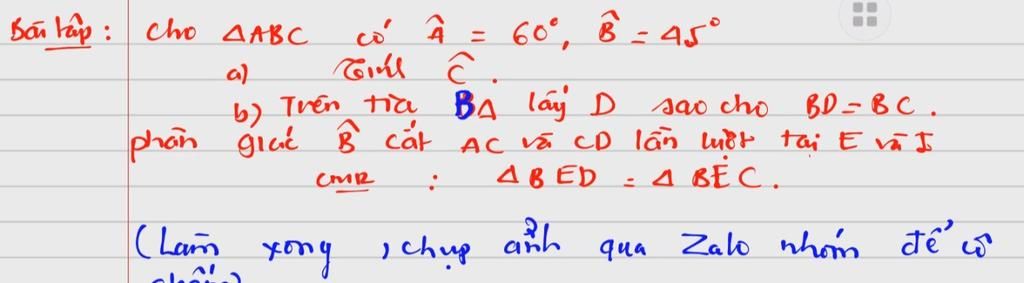 Bài tập : Cho ΔABC có Â = 60°, B̂ = 45°
a) Tính Ĉ .
b) Trên tia BA lấy D sao cho BD = BC .
phân giác B̂ cắt AC và CD lần lượt tại E và I
CMR : ΔBED = ΔBEC .
(Làm xong , chụp ảnh qua Zalo nhóm để cô
chấm)